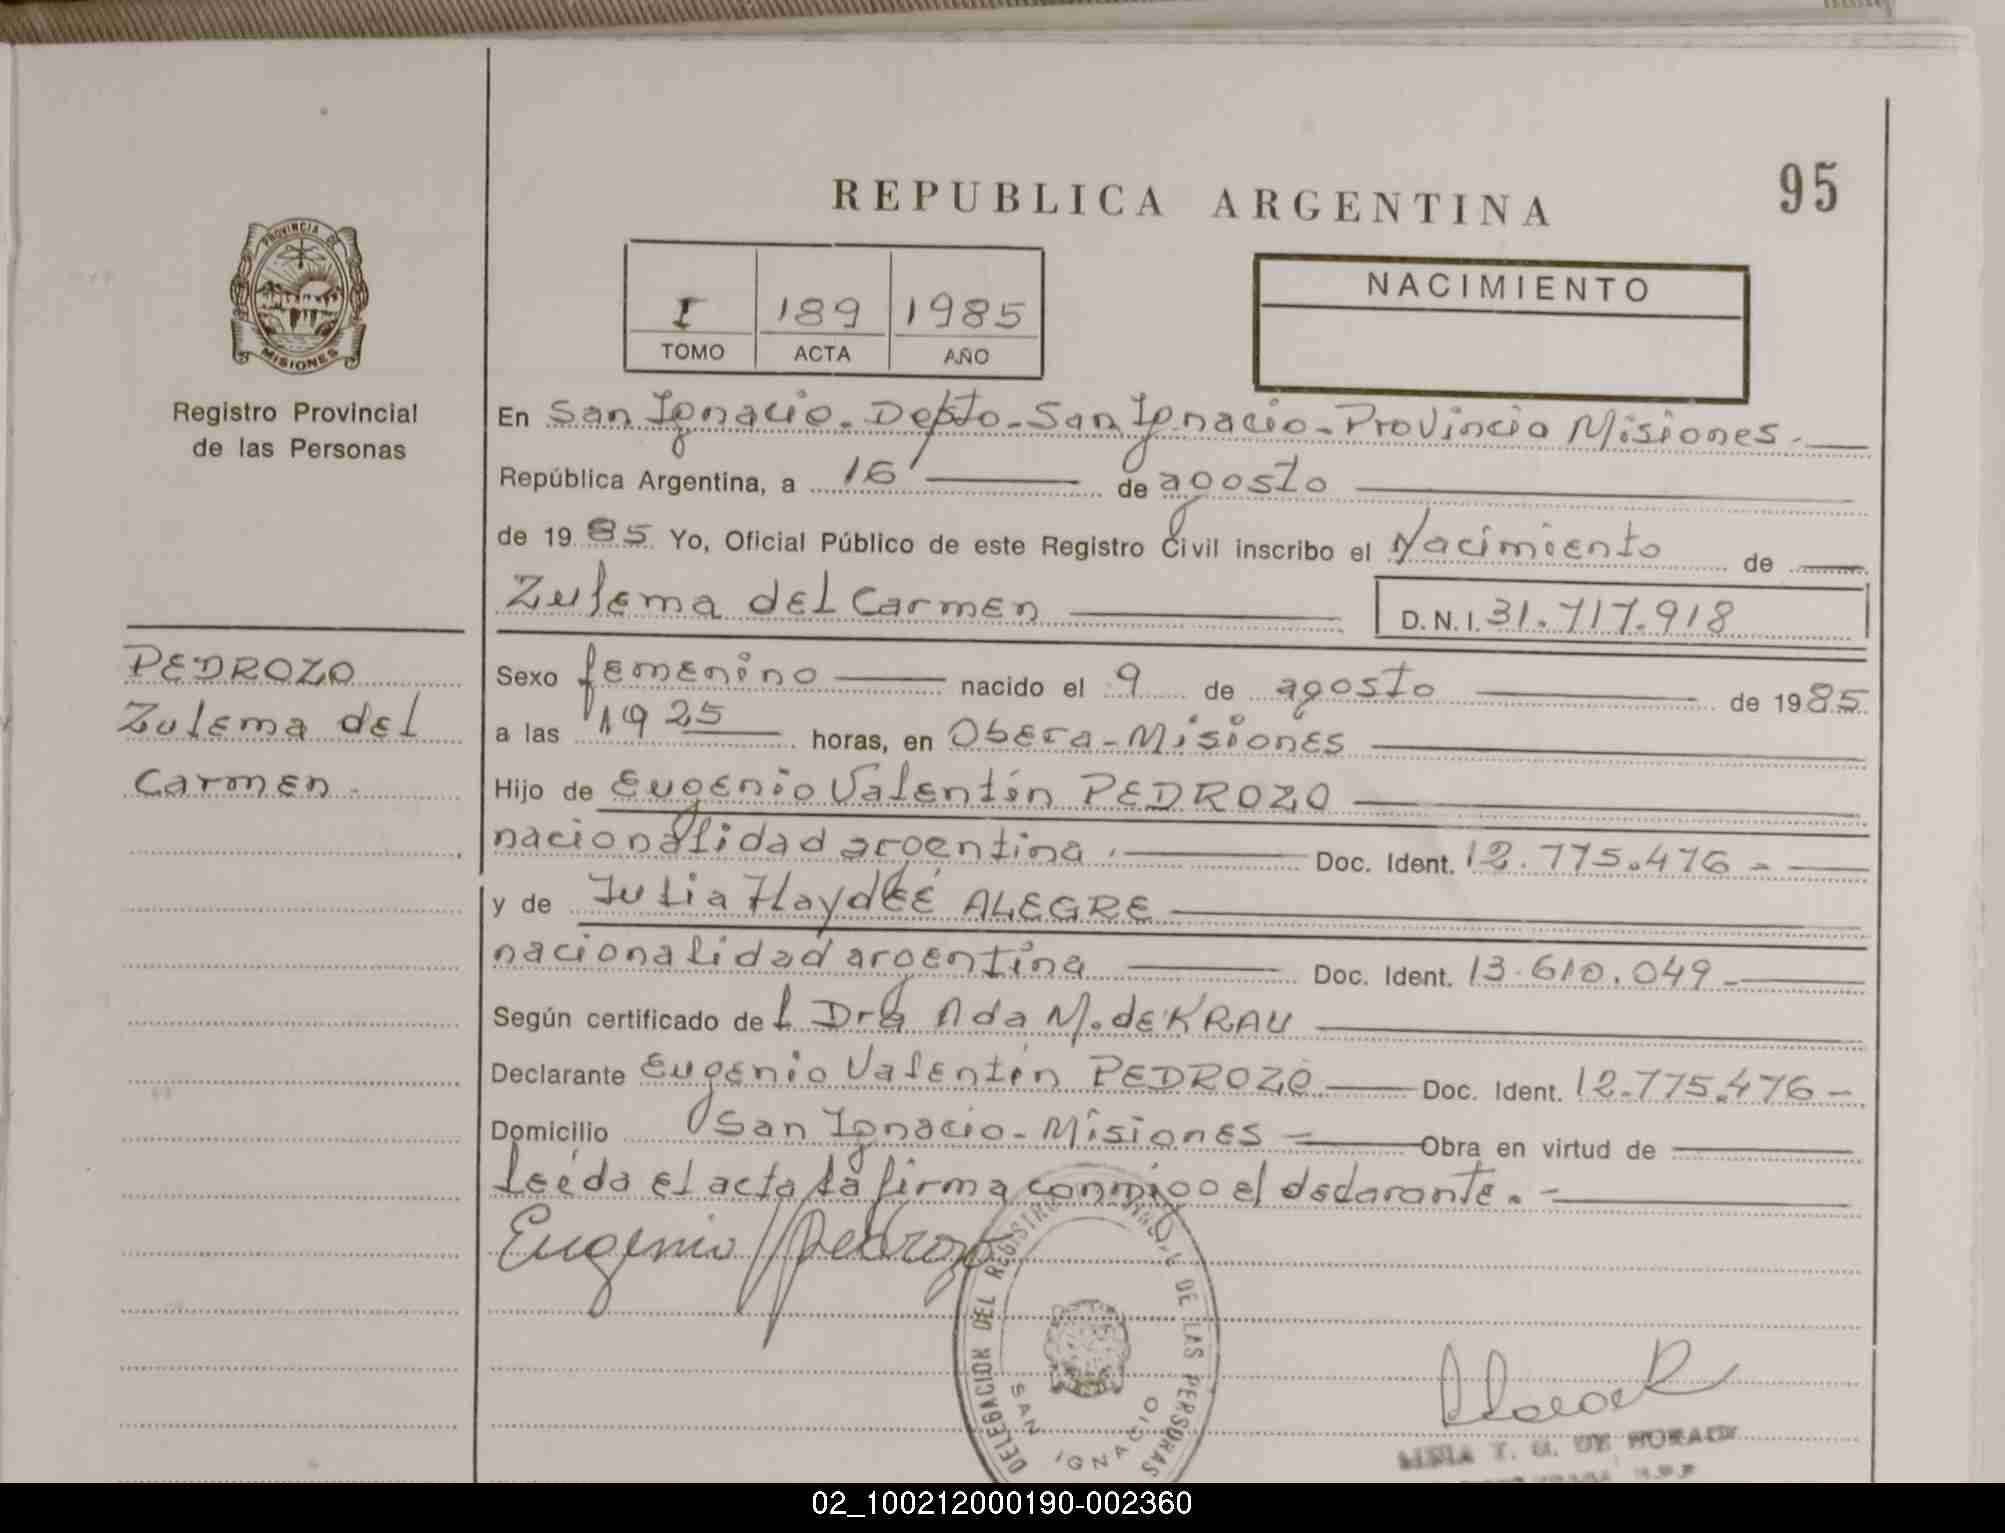 REPUBLICA ARGENTINA
95
PROVINCIA DE
MISIONES
Registro Provincial
de las Personas
I 189 1985
TOMO ACTA AÑO
NACIMIENTO
En San Ignacio. Depto. San Ignacio - Provincia Misiones.
República Argentina, a 16 de agosto
de 1985 Yo, Oficial Público de este Registro Civil inscribo el Nacimiento de
Zulema del Carmen D.N.I. 31.717.918
PEDROZO
Zulema del
Carmen.
Sexo femenino nacido el 9 de agosto de 1985
a las 19 25 horas, en Obera - Misiones
Hijo de Eugenio Valentín PEDROZO
nacionalidad argentina. Doc. Ident. 12.775.476 -
y de Julia Haydeé ALEGRE
nacionalidad argentina Doc. Ident. 13.610.049 -
Según certificado del Dra Ada M. de KRAU
Declarante Eugenio Valentín PEDROZO Doc. Ident. 12.775.476 -
Domicilio San Ignacio - Misiones - Obra en virtud de
Leéda el acta la firma conmigo el declarante. -
Eugenio Pedrozo
DELEGACION DEL REGISTRO DE LAS PERSONAS
SAN IGNACIO
DE
02_100212000190-002360